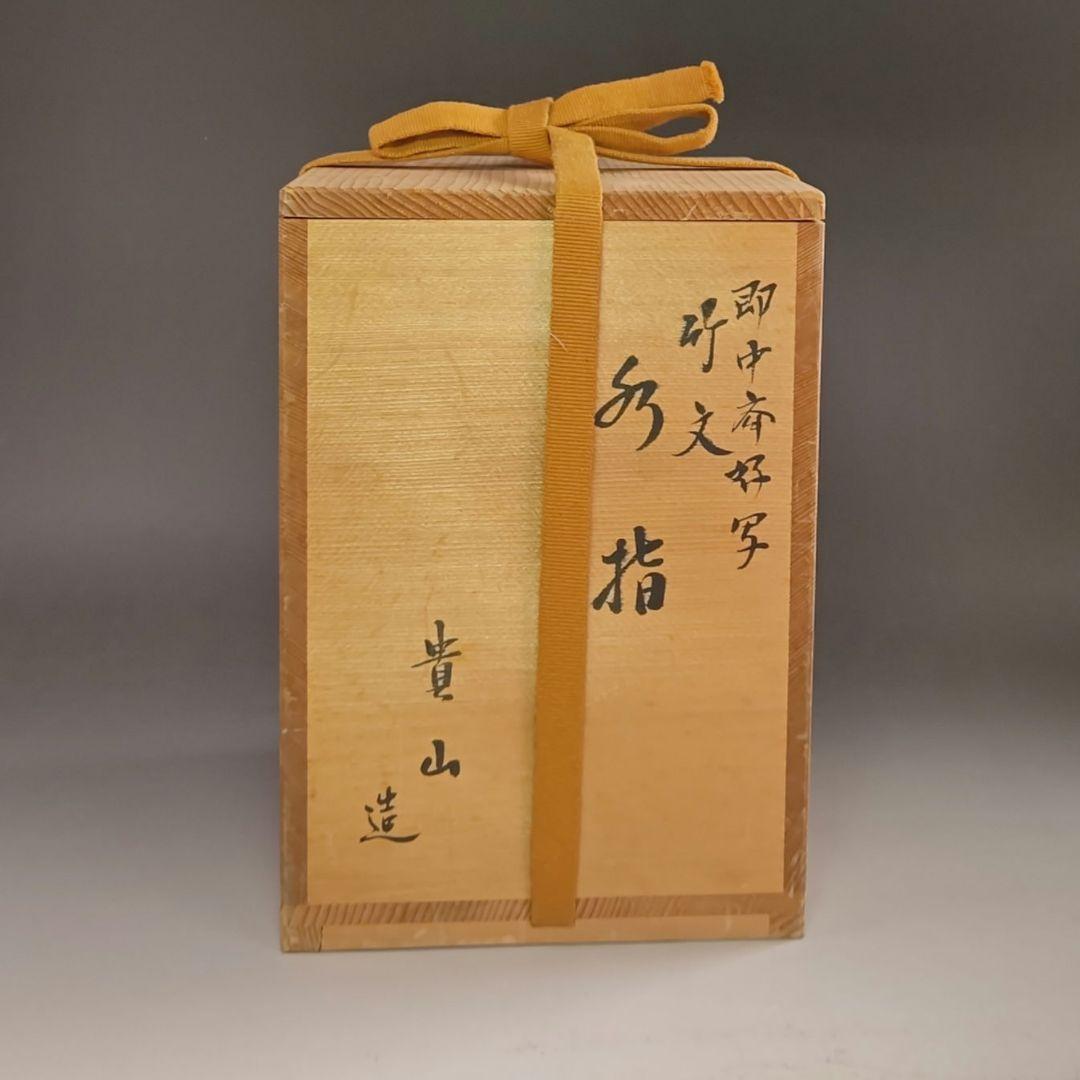 即中斎好写
竹文
水指
貴山
造